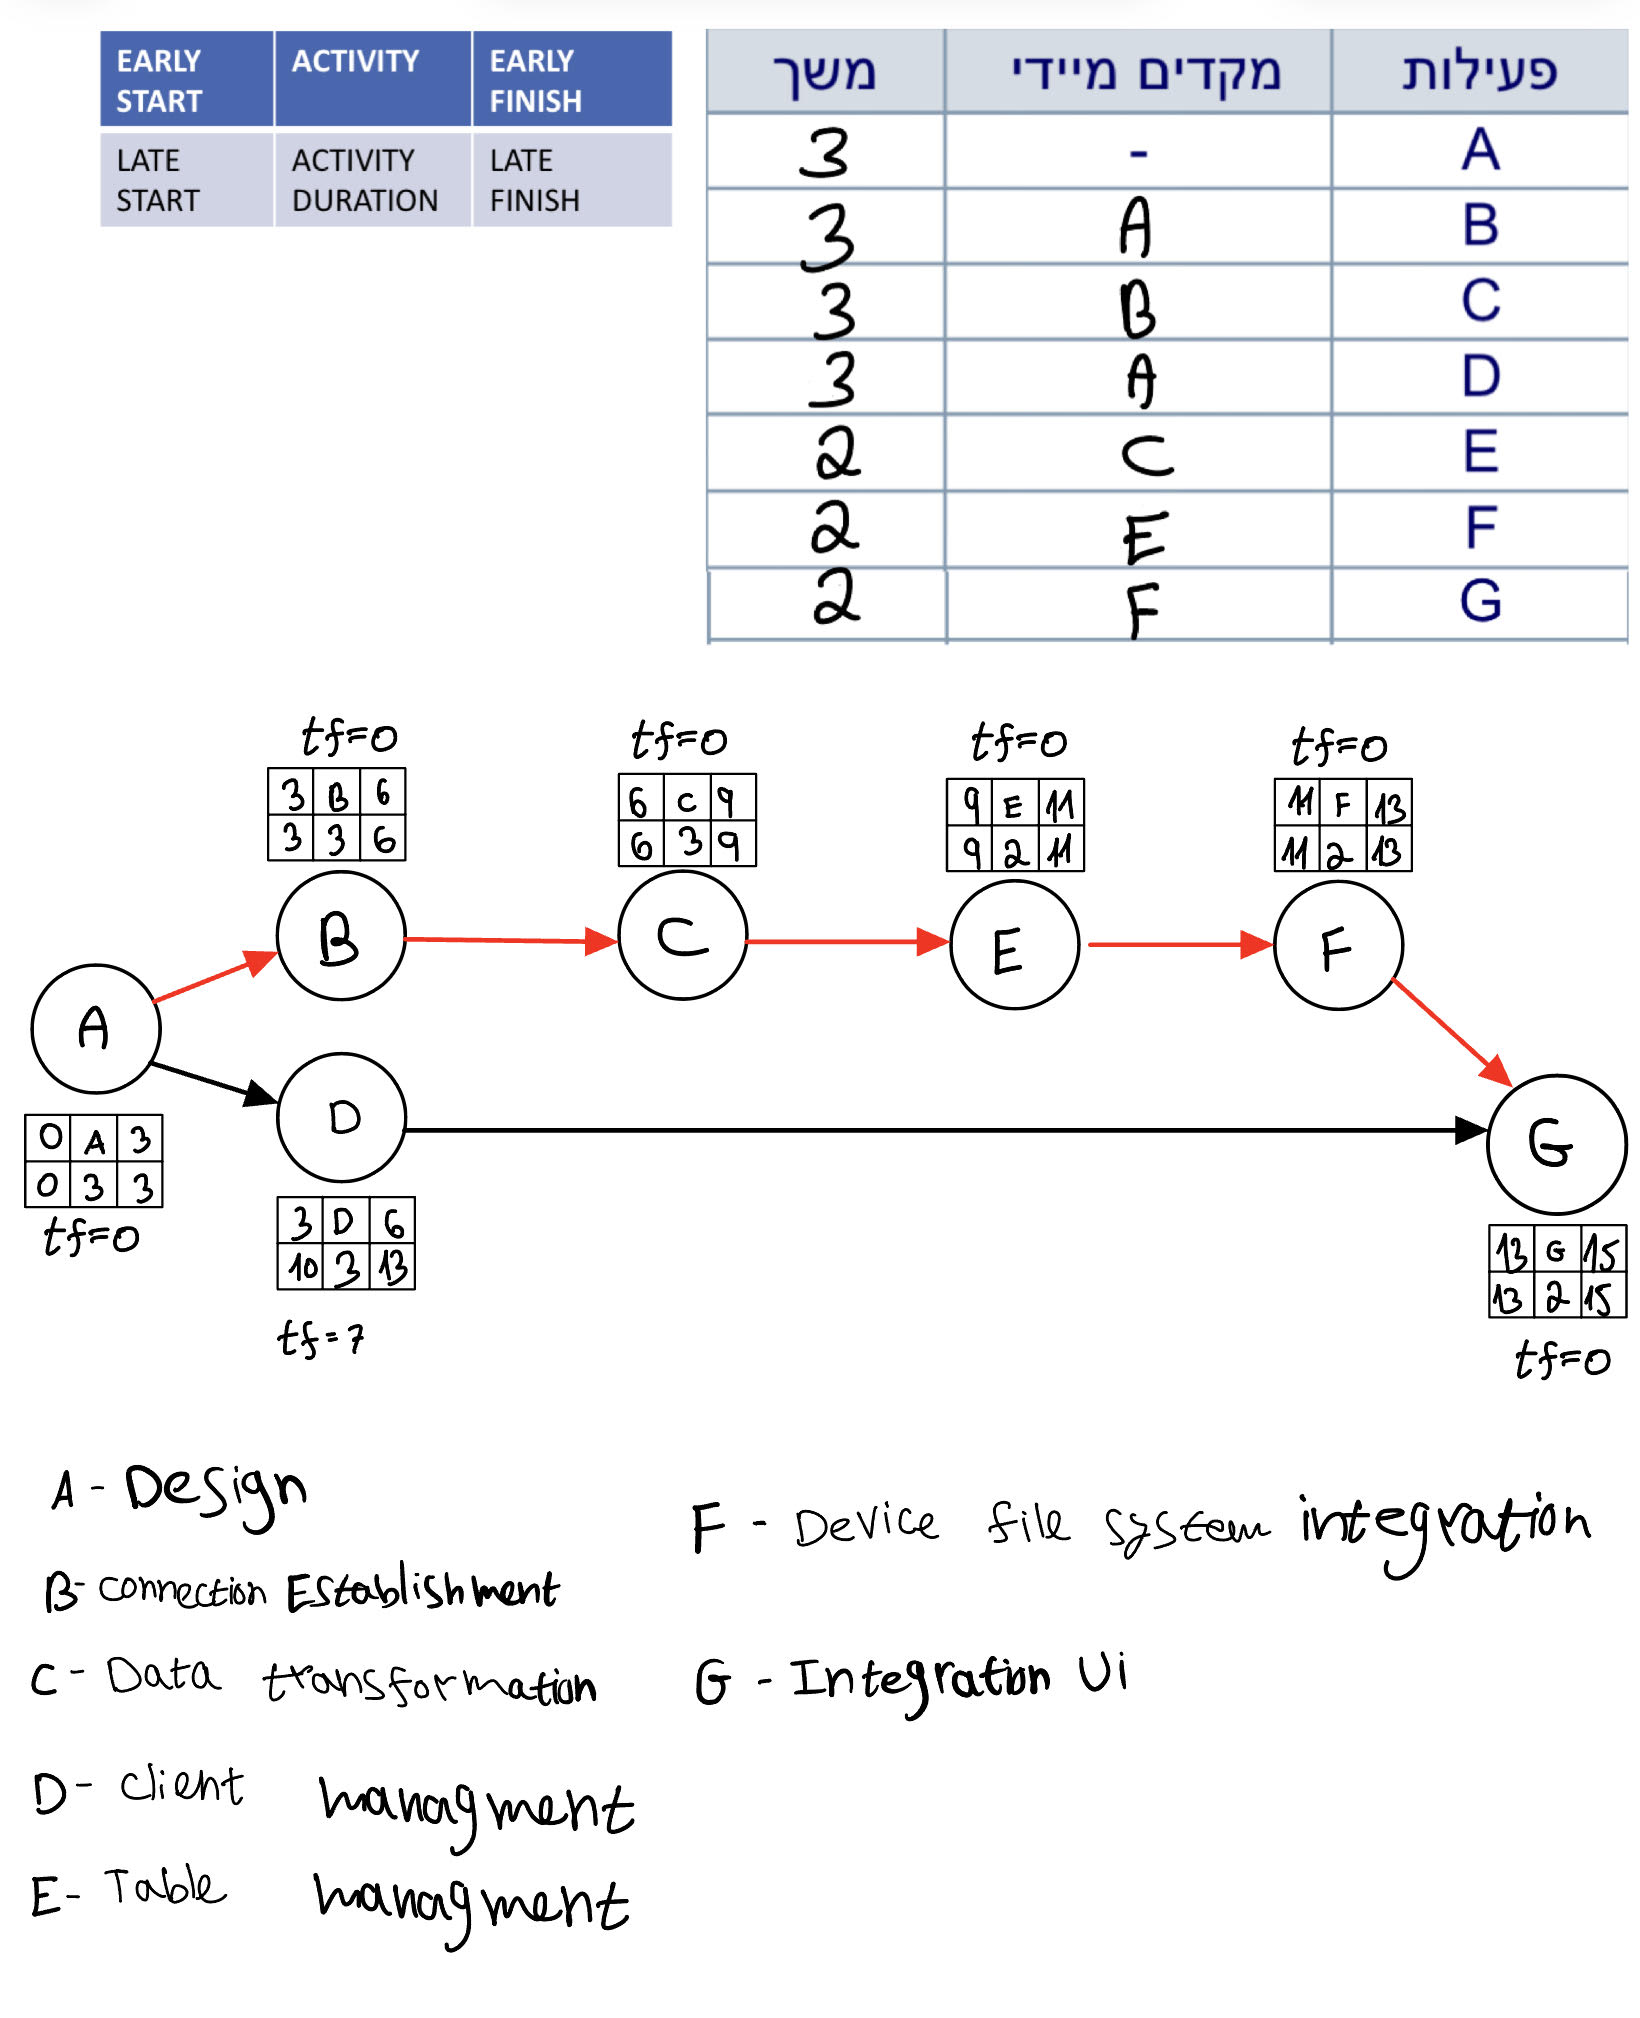 EARLY START ACTIVITY EARLY FINISH
LATE START ACTIVITY DURATION LATE FINISH
פעילות מקדים מיידי משך
A - 3
B A 3
C B 3
D A 3
E C 2
F E 2
G F 2
tf=0 tf=0 tf=0 tf=0
3 B 6 6 C 9 9 E 11 11 F 13
3 3 6 6 3 9 9 2 11 11 2 13
B C E F
A
D G
0 A 3
0 3 3
tf=0
3 D 6
10 3 13
tf=7
13 G 15
13 2 15
tf=0
A - Design
B- connection Establishment
C - Data transformation
D - client managment
E- Table managment
F - Device file system integration
G - Integration Ui